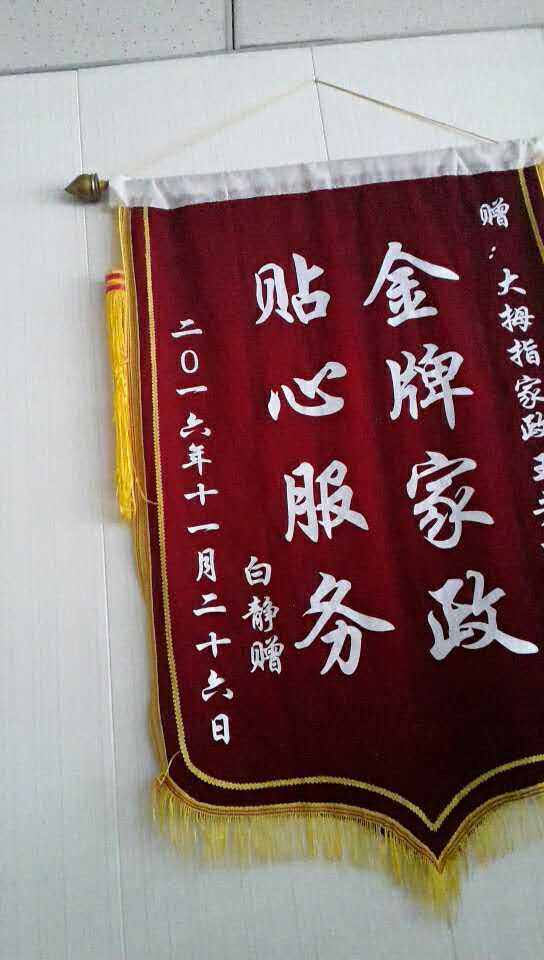 赠：大拇指家政
金牌家政
贴心服务
白静赠
二〇一六年十一月二十六日